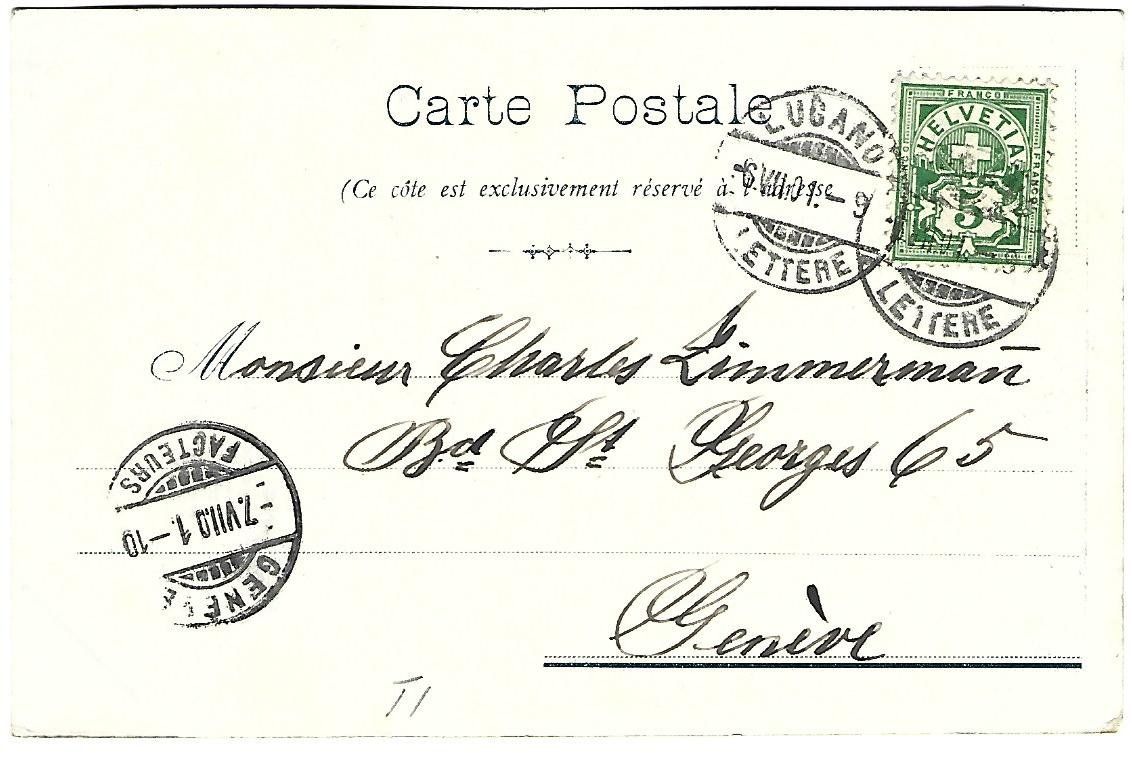 Carte Postale
(Ce côte est exclusivement réservé à l'adresse
LUGANO
6.VII.01.-9
LETTERE
FRANCO
HELVETIA
FRANCO
FRANCO
5
LETTERE
Monsieur Charles Zimmermañ
Bd St Georges 65
Genève
FACTEURS
-7.VII.01.-10
GENÈVE
T1